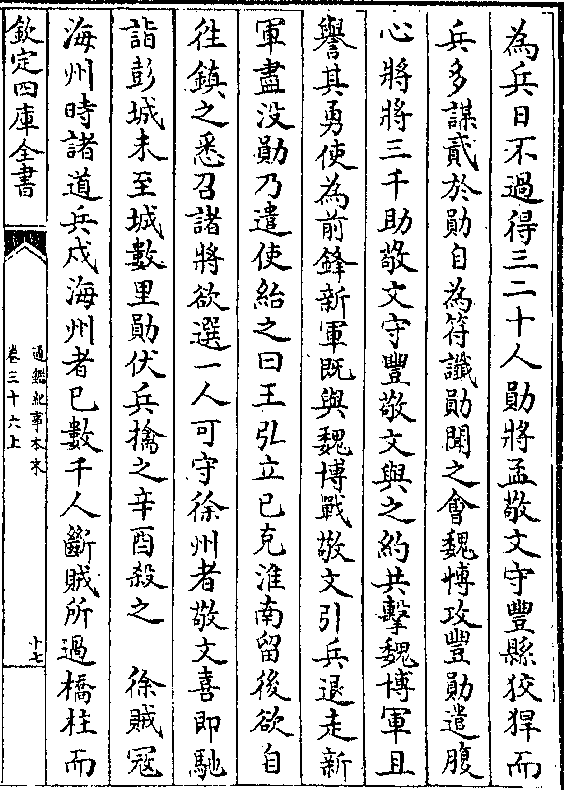 為兵日不過得三二十人勛將孟敬文守豐縣狡猂而
兵多謀貳於勛自為符讖勛聞之會魏愽攻豐勛遣腹
心將將三千助敬文守豐敬文與之約共擊魏博軍且
譽其勇使為前鋒新軍既與魏博戰敬文引兵退走新
軍盡没勛乃遣使紿之曰王弘立已克淮南留後欲自
往鎮之悉召諸將欲選一人可守徐州者敬文喜即馳
詣彭城未至城數里勛伏兵擒之辛酉殺之　徐賊冦
海州時諸道兵戍海州者已數千人斷賊所過橋柱而
欽定四庫全書
通鑑紀事本末
卷三十六上
十七